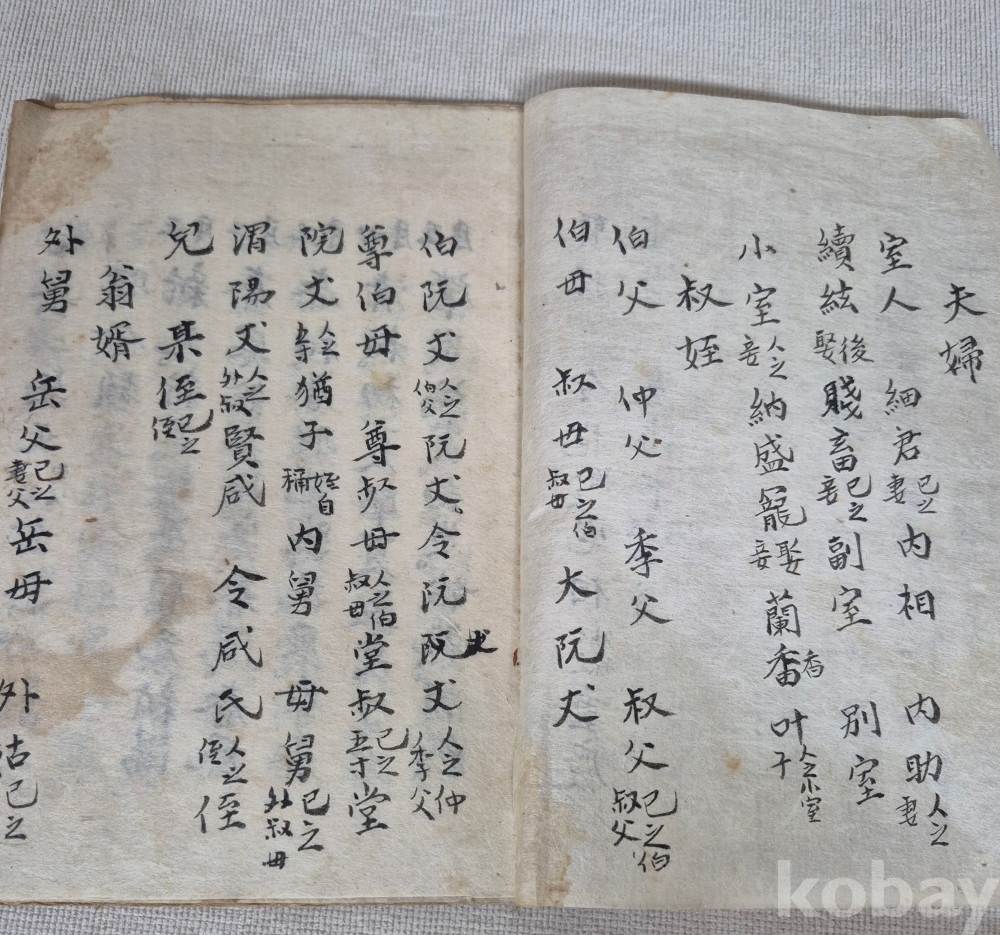 夫婦
室人 細君己之妻 内相 内助人之妻
續絃後娶 賤畜己之妾 副室 別室
小室人之妾 納盛寵娶妾 蘭畨香 叶于人之小室
叔姪
伯父 仲父 季父 叔父己之伯叔父
伯母 叔母己之伯叔母 大阮丈
伯阮丈人之伯父 阮丈 令阮 阮丈人之仲季父
丈
尊伯母 尊叔母人之伯叔母 堂叔己之五寸 堂
院丈人之 猶子姪自稱 内舅 母舅己之外叔母
渭陽丈人之外叔 賢咸 令咸氏人之侄 侄
兒 某侄己之侄
翁婿
外舅 岳父己之妻父 岳母 外姑己之
kobay